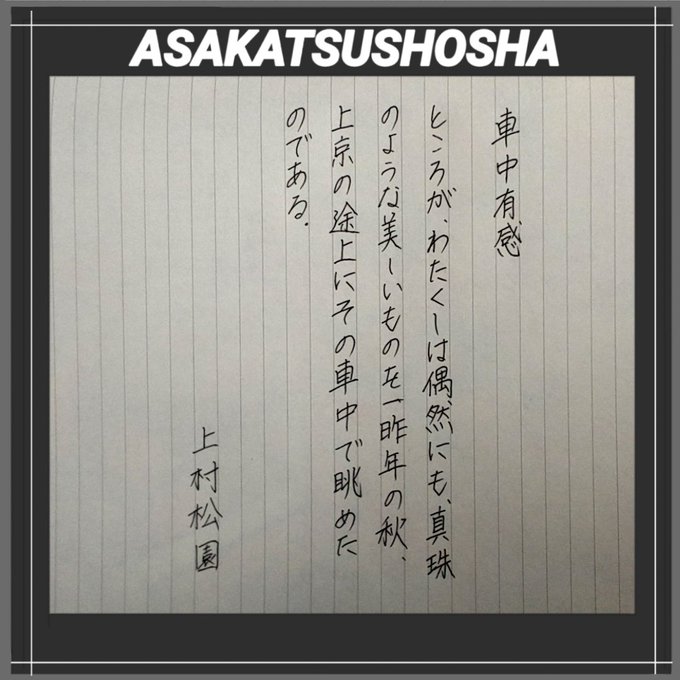 ASAKATSUSHOSHA
車中有感
ところが、わたくしは偶然にも、真珠
のような美しいものを一昨年の秋、
上京の途上にその車中で眺めた
のである。
上村松園